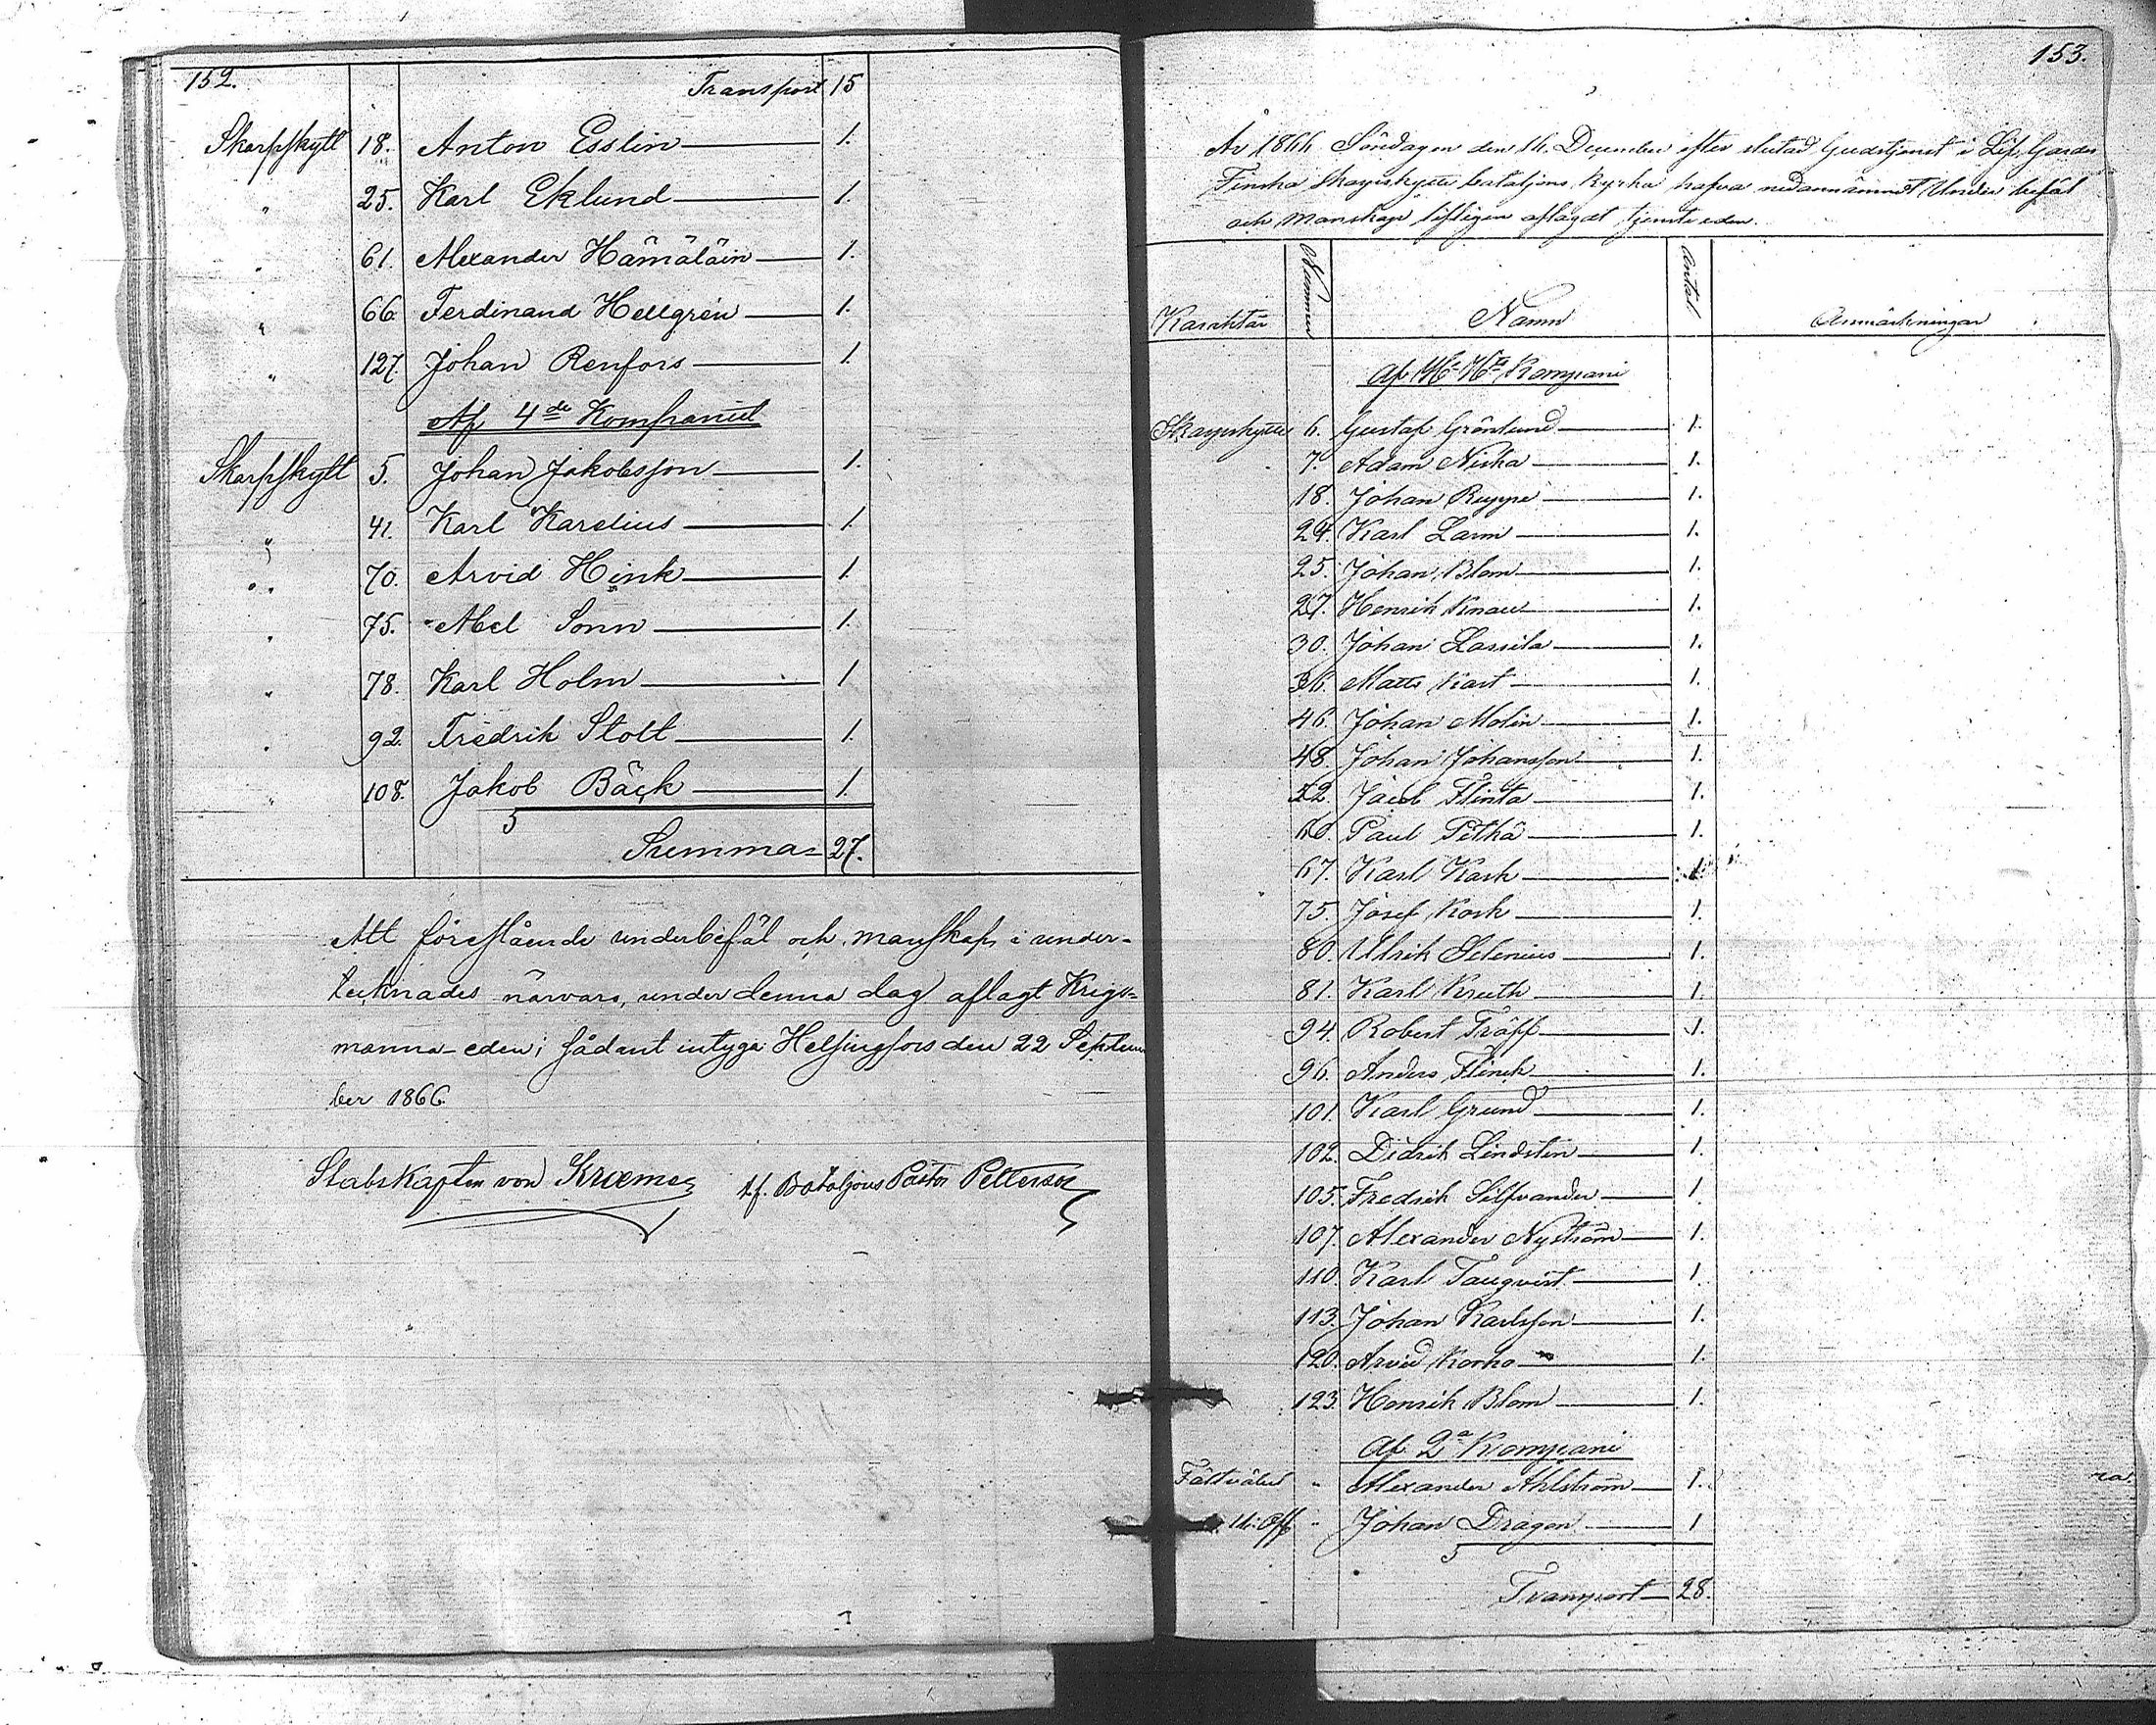 152.
Transport 15
Skarpskytt 18. Anton Esslin 1.
" 25. Karl Eklund 1.
" 61. Alexander Hämäläin 1.
" 66. Ferdinand Hellgrén 1.
" 127. Johan Renfors 1.
Af 4de Kompaniet
Skarpskytt 5. Johan Jakobsson 1.
" 41. Karl Karelius 1.
" 70. Arvid Hink 1.
" 75. Abel Sonn 1.
" 78. Karl Holm 1
" 92. Fredrik Stolt 1.
" 108. Jakob Bäck 1.
Summa 27.
Att föreslående underbefäl och manskap i under-
tecknades närvaro, under denna dag aflagt Krigs-
manna-eden; sådant intyga Helsingfors den 22 Septem
ber 1866.
Stabskapten von Kræmer tf. Bataljons Pastor Petterson
153.
År 1866 Söndagen den 16. December efter slutad Gudstjenst i Lif Gardes
Finska Skarpskytte bataljons kyrka hafva nedannämndt Under befäl
och Manskap lifligen aflagdt tjenste eden.
Karaktär Nummer Namn Antal Anmärkningar
Kompani
Skarpskytte 6. Gustaf Grönlund 1.
7. Adam Niska 1.
18. Johan Ruppe 1.
24. Karl Larm 1.
25. Johan Blom 1.
27. Henrik Knaw 1.
30. Johan Lassila 1.
36. Matts Kart 1.
46. Johan Molin 1.
48. Johan Johansson 1.
52. Jacob Flinta 1.
60. Paul Pethä 1.
67. Karl Kark 1.
75. Josef Kosk 1.
80. Ulrik Selenius 1.
81. Karl Kruth 1.
94. Robert Träff 1.
96. Anders Flinck 1.
101. Karl Grund 1.
102. Didrik Lindsten 1.
105. Fredrik Silfvander 1.
107. Alexander Nyström 1.
110. Karl Tangvist 1.
113. Johan Karlsson 1.
120. Arvid Korho 1.
123. Henrik Blom 1.
Af 2a Kompani
Fältväbel " Alexander Ahlström 1.
Und: Off " Johan Dragon 1
Transport 28.